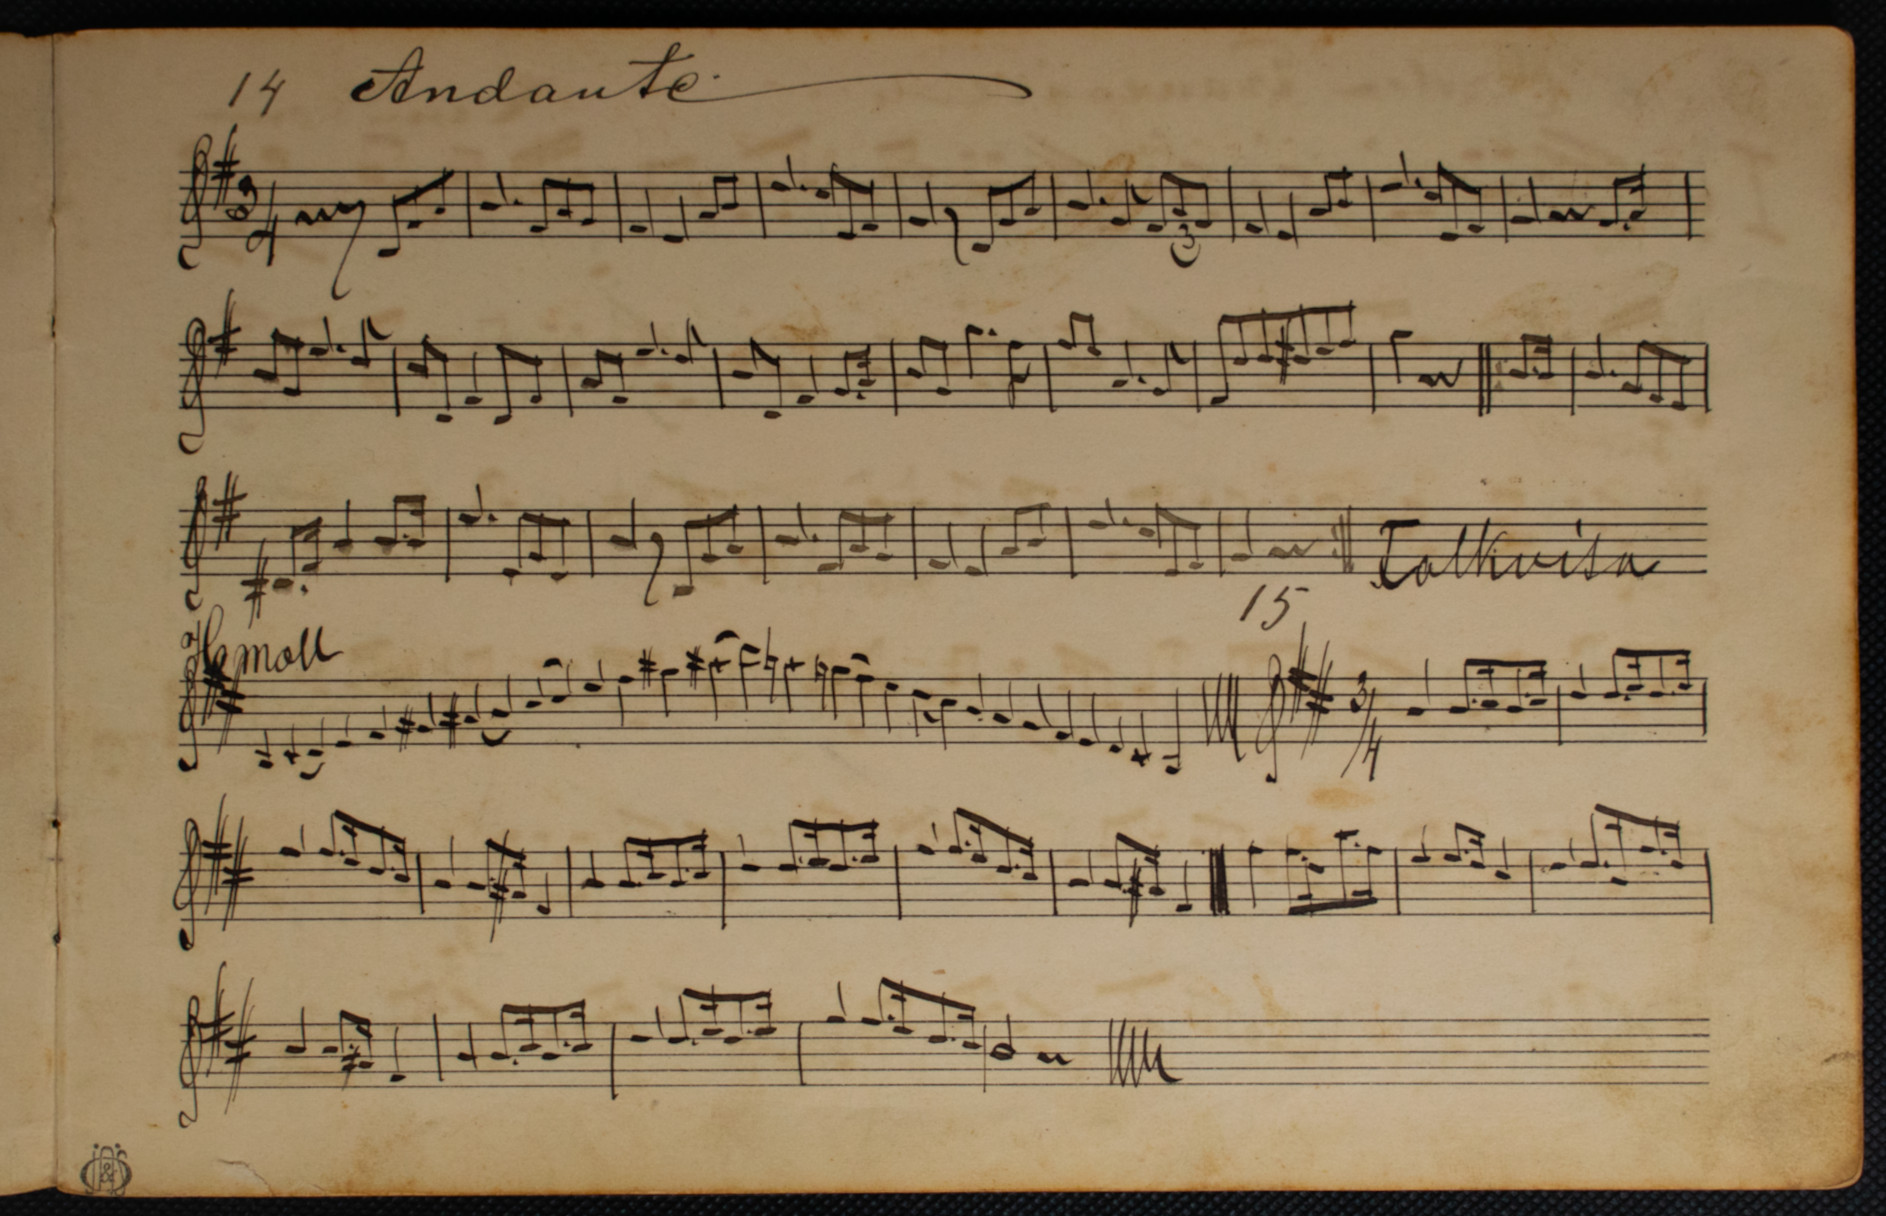 14 Andante
3/4
3
Folkvisa
H moll
15
3/4